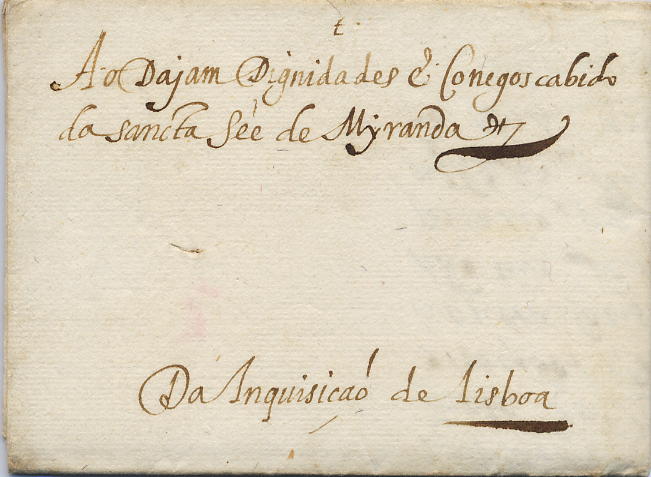 t
Ao Dajam Dignidades e Conegos cabido
da sancta Sée de Myranda etz
Da Inquisicaó de Lisboa